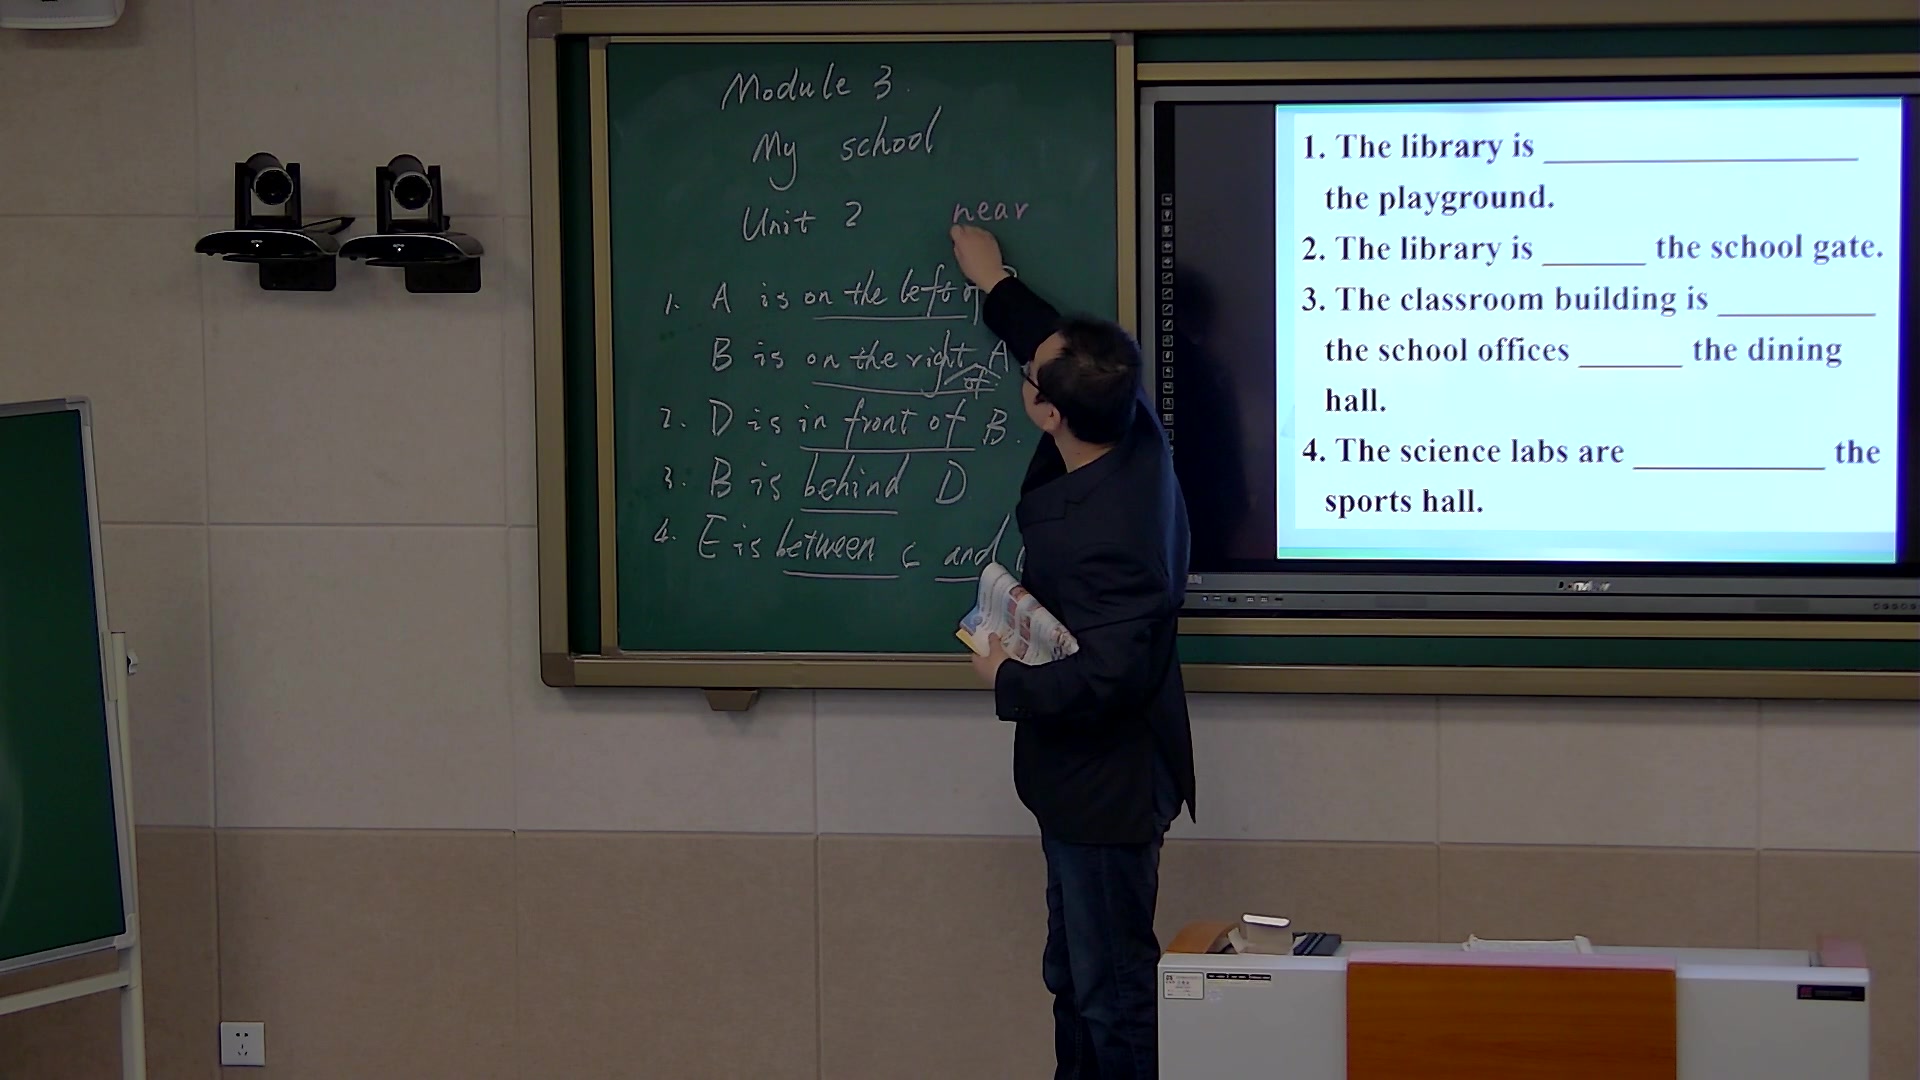 Module 3
My school
Unit 2
near
1. A is on the left of
B is on the right A
of
2. D is in front of B.
3. B is behind D
4. E is between c and
1. The library is ____________________
the playground.
2. The library is _______ the school gate.
3. The classroom building is __________
the school offices _______ the dining
hall.
4. The science labs are ____________ the
sports hall.